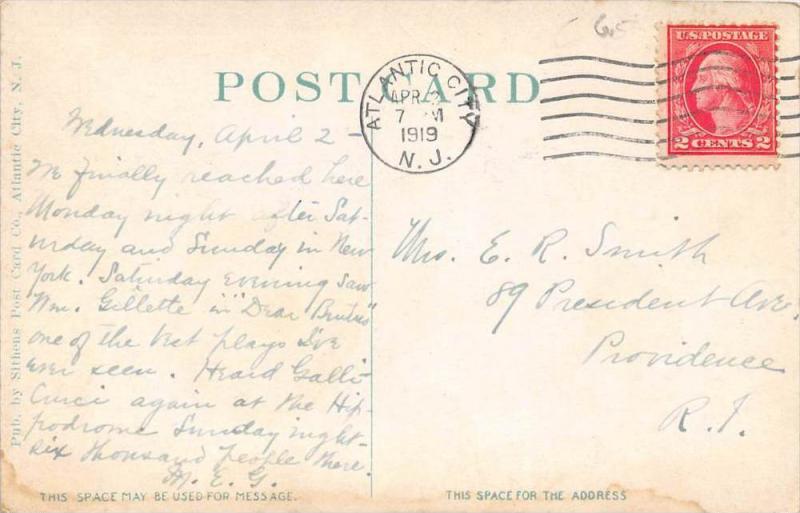 65
U.S. POSTAGE
2 CENTS 2
ATLANTIC CITY
APR 2
7 M
1919
N. J.
POST CARD
Pub. by Sithens Post Card Co., Atlantic City, N. J.
Wednesday, April 2 -
We finally reached here
Monday night after Sat-
urday and Sunday in New
York. Saturday evening saw
Wm. Gillette in "Dear Brutus"
one of the best plays I've
ever seen. Heard Galli-
Curci again at the Hip-
podrome Sunday night-
six thousand people there.
M. E. G.
Mrs. E. R. Smith
89 President Ave.
Providence
R. I.
THIS SPACE MAY BE USED FOR MESSAGE.
THIS SPACE FOR THE ADDRESS